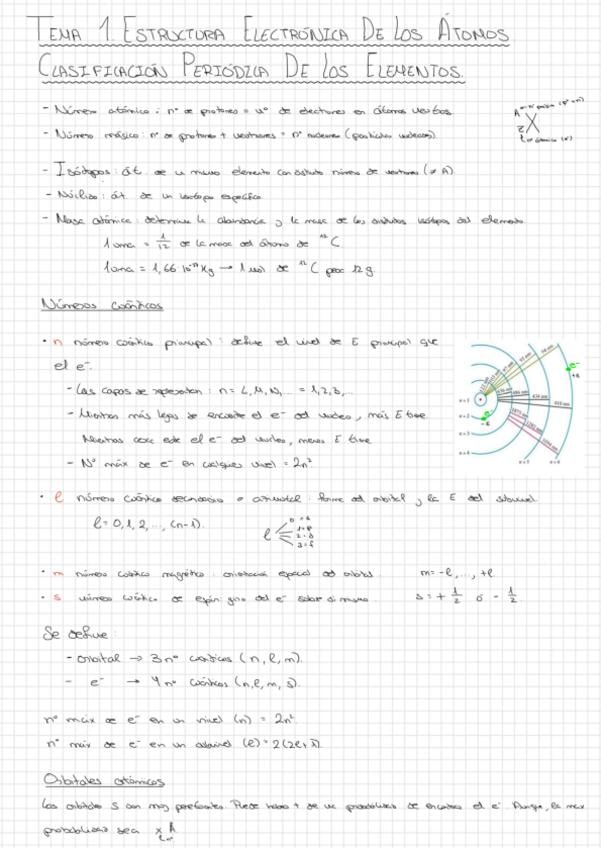 TEMA 1. ESTRUCTURA ELECTRÓNICA DE LOS ÁTOMOS
CLASIFICACIÓN PERIÓDICA DE LOS ELEMENTOS.
- Número atómico: nº de protones = nº de electrones en átomos neutros.
- Número másico: nº de protones + neutrones = nº nucleones (partículas nucleares).
A
X
Z
- Isótopos: át. de un mismo elemento con distinto número de neutrones (≠ A).
- Núclido: át. de un isótopo específico.
- Masa atómica: determina la abundancia y la masa de los distintos isótopos del elemento.
1 uma = 1/12 de la masa del átomo de ¹²C
1 uma = 1,66 10⁻²⁷ Kg → 1 mol de ¹²C pesa 12 g.
Números cuánticos
• n número cuántico principal: define el nivel de E principal que
el e⁻.
- Las capas se representan: n = L, M, N, ... = 1, 2, 3, ...
- Mientras más lejos se encuentre el e⁻ del núcleo, más E tiene.
Mientras cerca esté el e⁻ del núcleo, menos E tiene
- Nº máx de e⁻ en cualquier nivel = 2n²
n=1
n=2
n=3
n=4
n=5
n=6
• l número cuántico secundario o azimutal: forma del orbital y la E del subnivel
l = 0, 1, 2, ..., (n-1).
l
0 = s
1 = p
2 = d
3 = f
• m número cuántico magnético: orientación espacial del orbital. m = -l, ..., +l
• s número cuántico de espín: giro del e⁻ sobre sí mismo. s = + 1/2 ó - 1/2
Se define:
- orbital → 3 nº cuánticos (n, l, m).
- e⁻ → 4 nº cuánticos (n, l, m, s).
nº máx de e⁻ en un nivel (n) = 2n²
nº máx de e⁻ en un subnivel (l) = 2(2l+1).
Orbitales atómicos
Los orbitales s son muy penetrantes. Puede haber + de una probabilidad de encontrar el e⁻. Aunque, la max
probabilidad sea